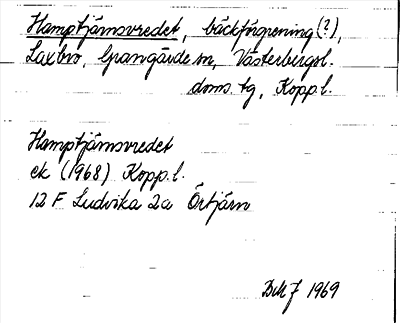 Hamptjärnsvredet, bäckförgrening(?),
Laxbro, Grangärde sn, Västerbergsl.
doms. tg, Kopp.l.
Hamptjärnsvredet
ek (1968) Kopp.l.
12 F Ludvika 2a Örtjärn
1969